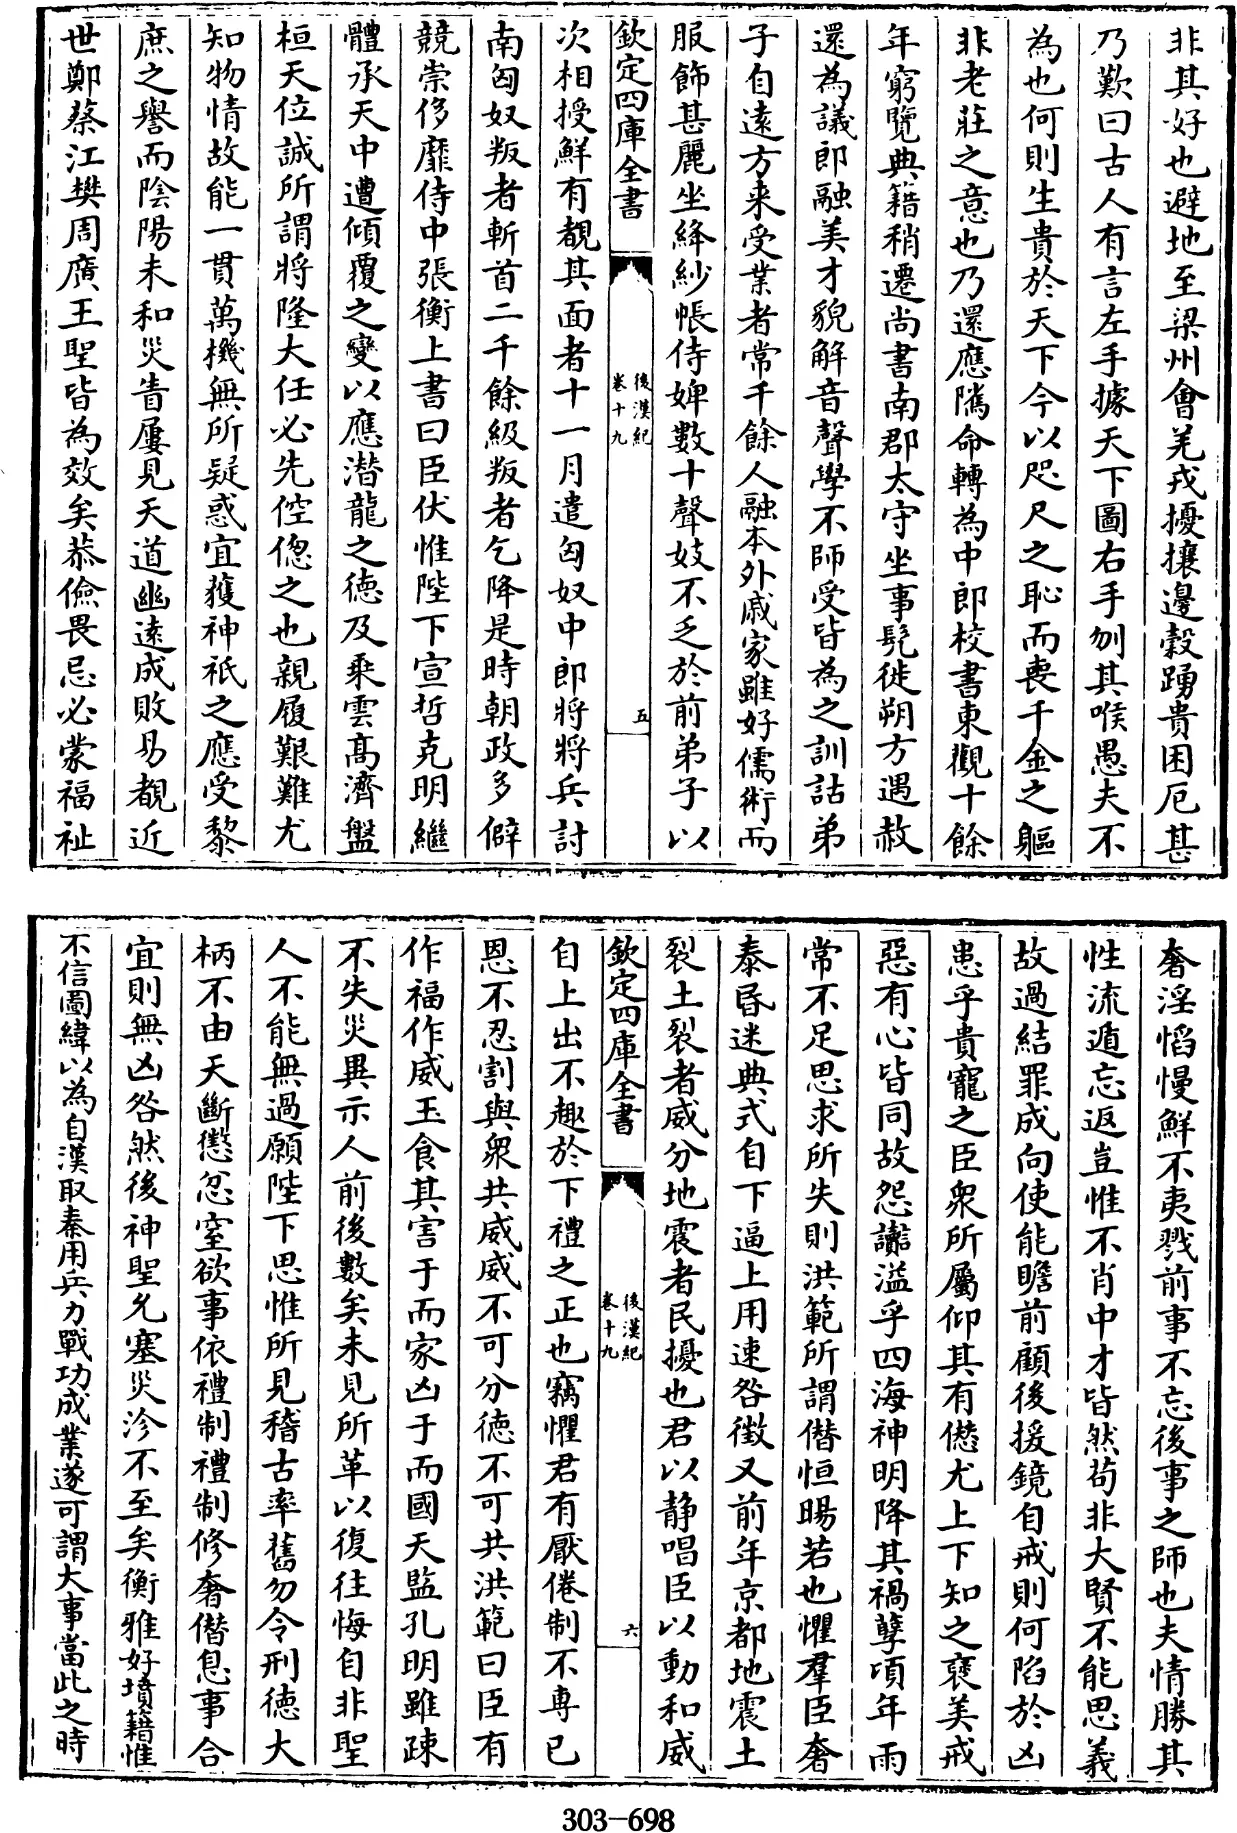 非其好也避地至梁州會羌戎擾攘邊穀踴貴困厄甚
乃歎曰古人有言左手據天下圖右手刎其喉愚夫不
為也何則生貴於天下今以咫尺之恥而喪千金之軀
非老莊之意也乃還應隲命轉為中郎校書東觀十餘
年窮覽典籍稍遷尚書南郡太守坐事髠徙朔方遇赦
還為議郎融美才貌解音聲學不師受皆為之訓詁弟
子自遠方来受業者常千餘人融本外戚家雖好儒術而
服飾甚麗坐絳紗帳侍婢數十聲妓不乏於前弟子以
欽定四庫全書
後漢紀
卷十九
五
次相授鮮有覩其面者十一月遣匈奴中郎將將兵討
南匈奴叛者斬首二千餘級叛者乞降是時朝政多僻
競崇侈靡侍中張衡上書曰臣伏惟陛下宣哲克明繼
體承天中遭傾覆之變以應潛龍之徳及乘雲髙濟盤
桓天位誠所謂將隆大任必先倥偬之也親履艱難尤
知物情故能一貫萬機無所疑惑宜獲神祇之應受黎
庶之譽而陰陽未和災眚屢見天道幽遠成敗易覩近
世鄭蔡江樊周廣王聖皆為效矣恭儉畏忌必蒙福祉
奢淫慆慢鮮不夷戮前事不忘後事之師也夫情勝其
性流遁忘返豈惟不肖中才皆然苟非大賢不能思義
故過結罪成向使能瞻前顧後援鏡自戒則何陷於凶
患乎貴寵之臣衆所屬仰其有僁尤上下知之襃美戒
惡有心皆同故怨讟溢乎四海神明降其禍孽頃年雨
常不足思求所失則洪範所謂僭恒暘若也懼羣臣奢
泰昏迷典式自下逼上用速咎徴又前年京都地震土
裂土裂者威分地震者民擾也君以静唱臣以動和威
欽定四庫全書
後漢紀
卷十九
六
自上出不趣於下禮之正也竊懼君有厭倦制不専已
恩不忍割與衆共威威不可分徳不可共洪範曰臣有
作福作威玉食其害于而家凶于而國天監孔明雖疎
不失災異示人前後數矣未見所革以復往悔自非聖
人不能無過願陛下思惟所見稽古率舊勿令刑徳大
柄不由天斷懲忿窒欲事依禮制禮制修奢僭息事合
宜則無凶咎然後神聖允塞災沴不至矣衡雅好墳籍惟
不信圖緯以為自漢取秦用兵力戰功成業遂可謂大事當此之時
303-698